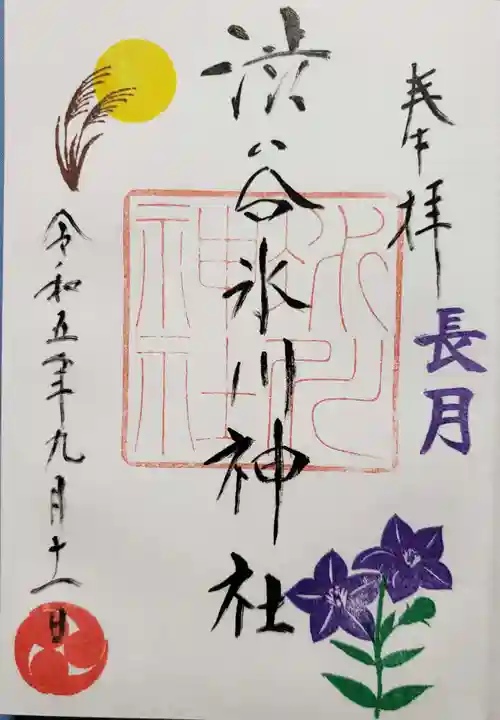 奉拝
長月
渋谷氷川神社
氷川
神社
令和五年九月十一日